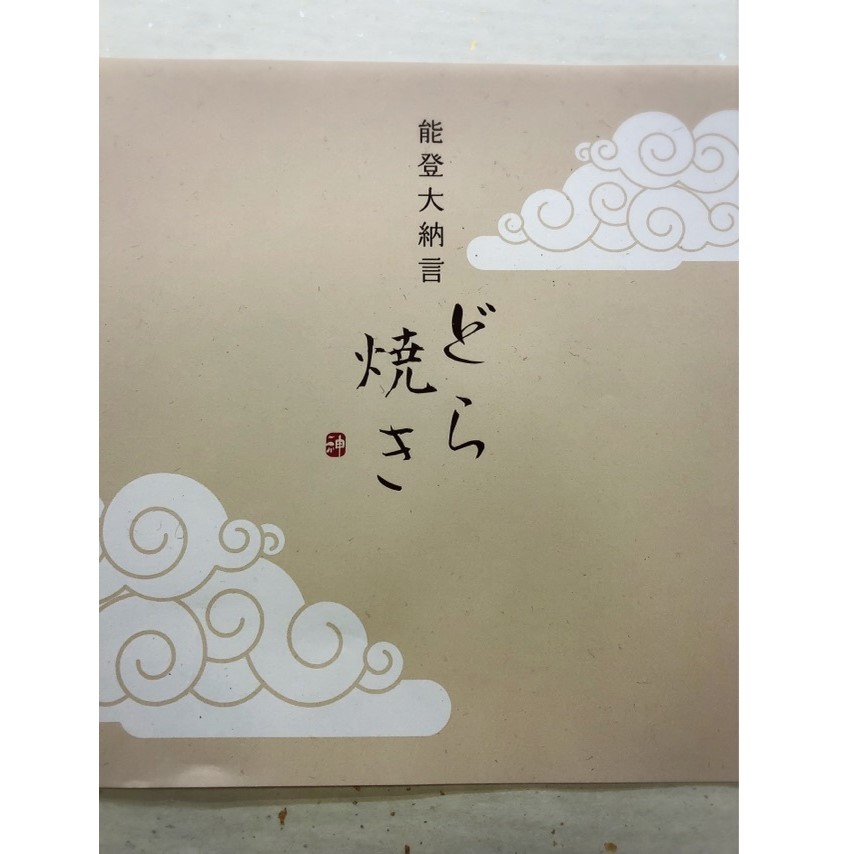 能登大納言
どら
焼き
神